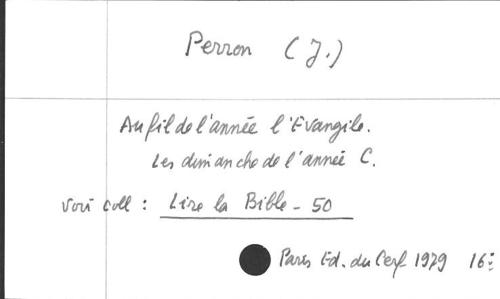 Perron (J.)
Au fil de l'année l'Evangile.
Les dimanche de l'année C.
Voir coll : Lire la Bible - 50
Paris Ed. du Cerf 1979 16: